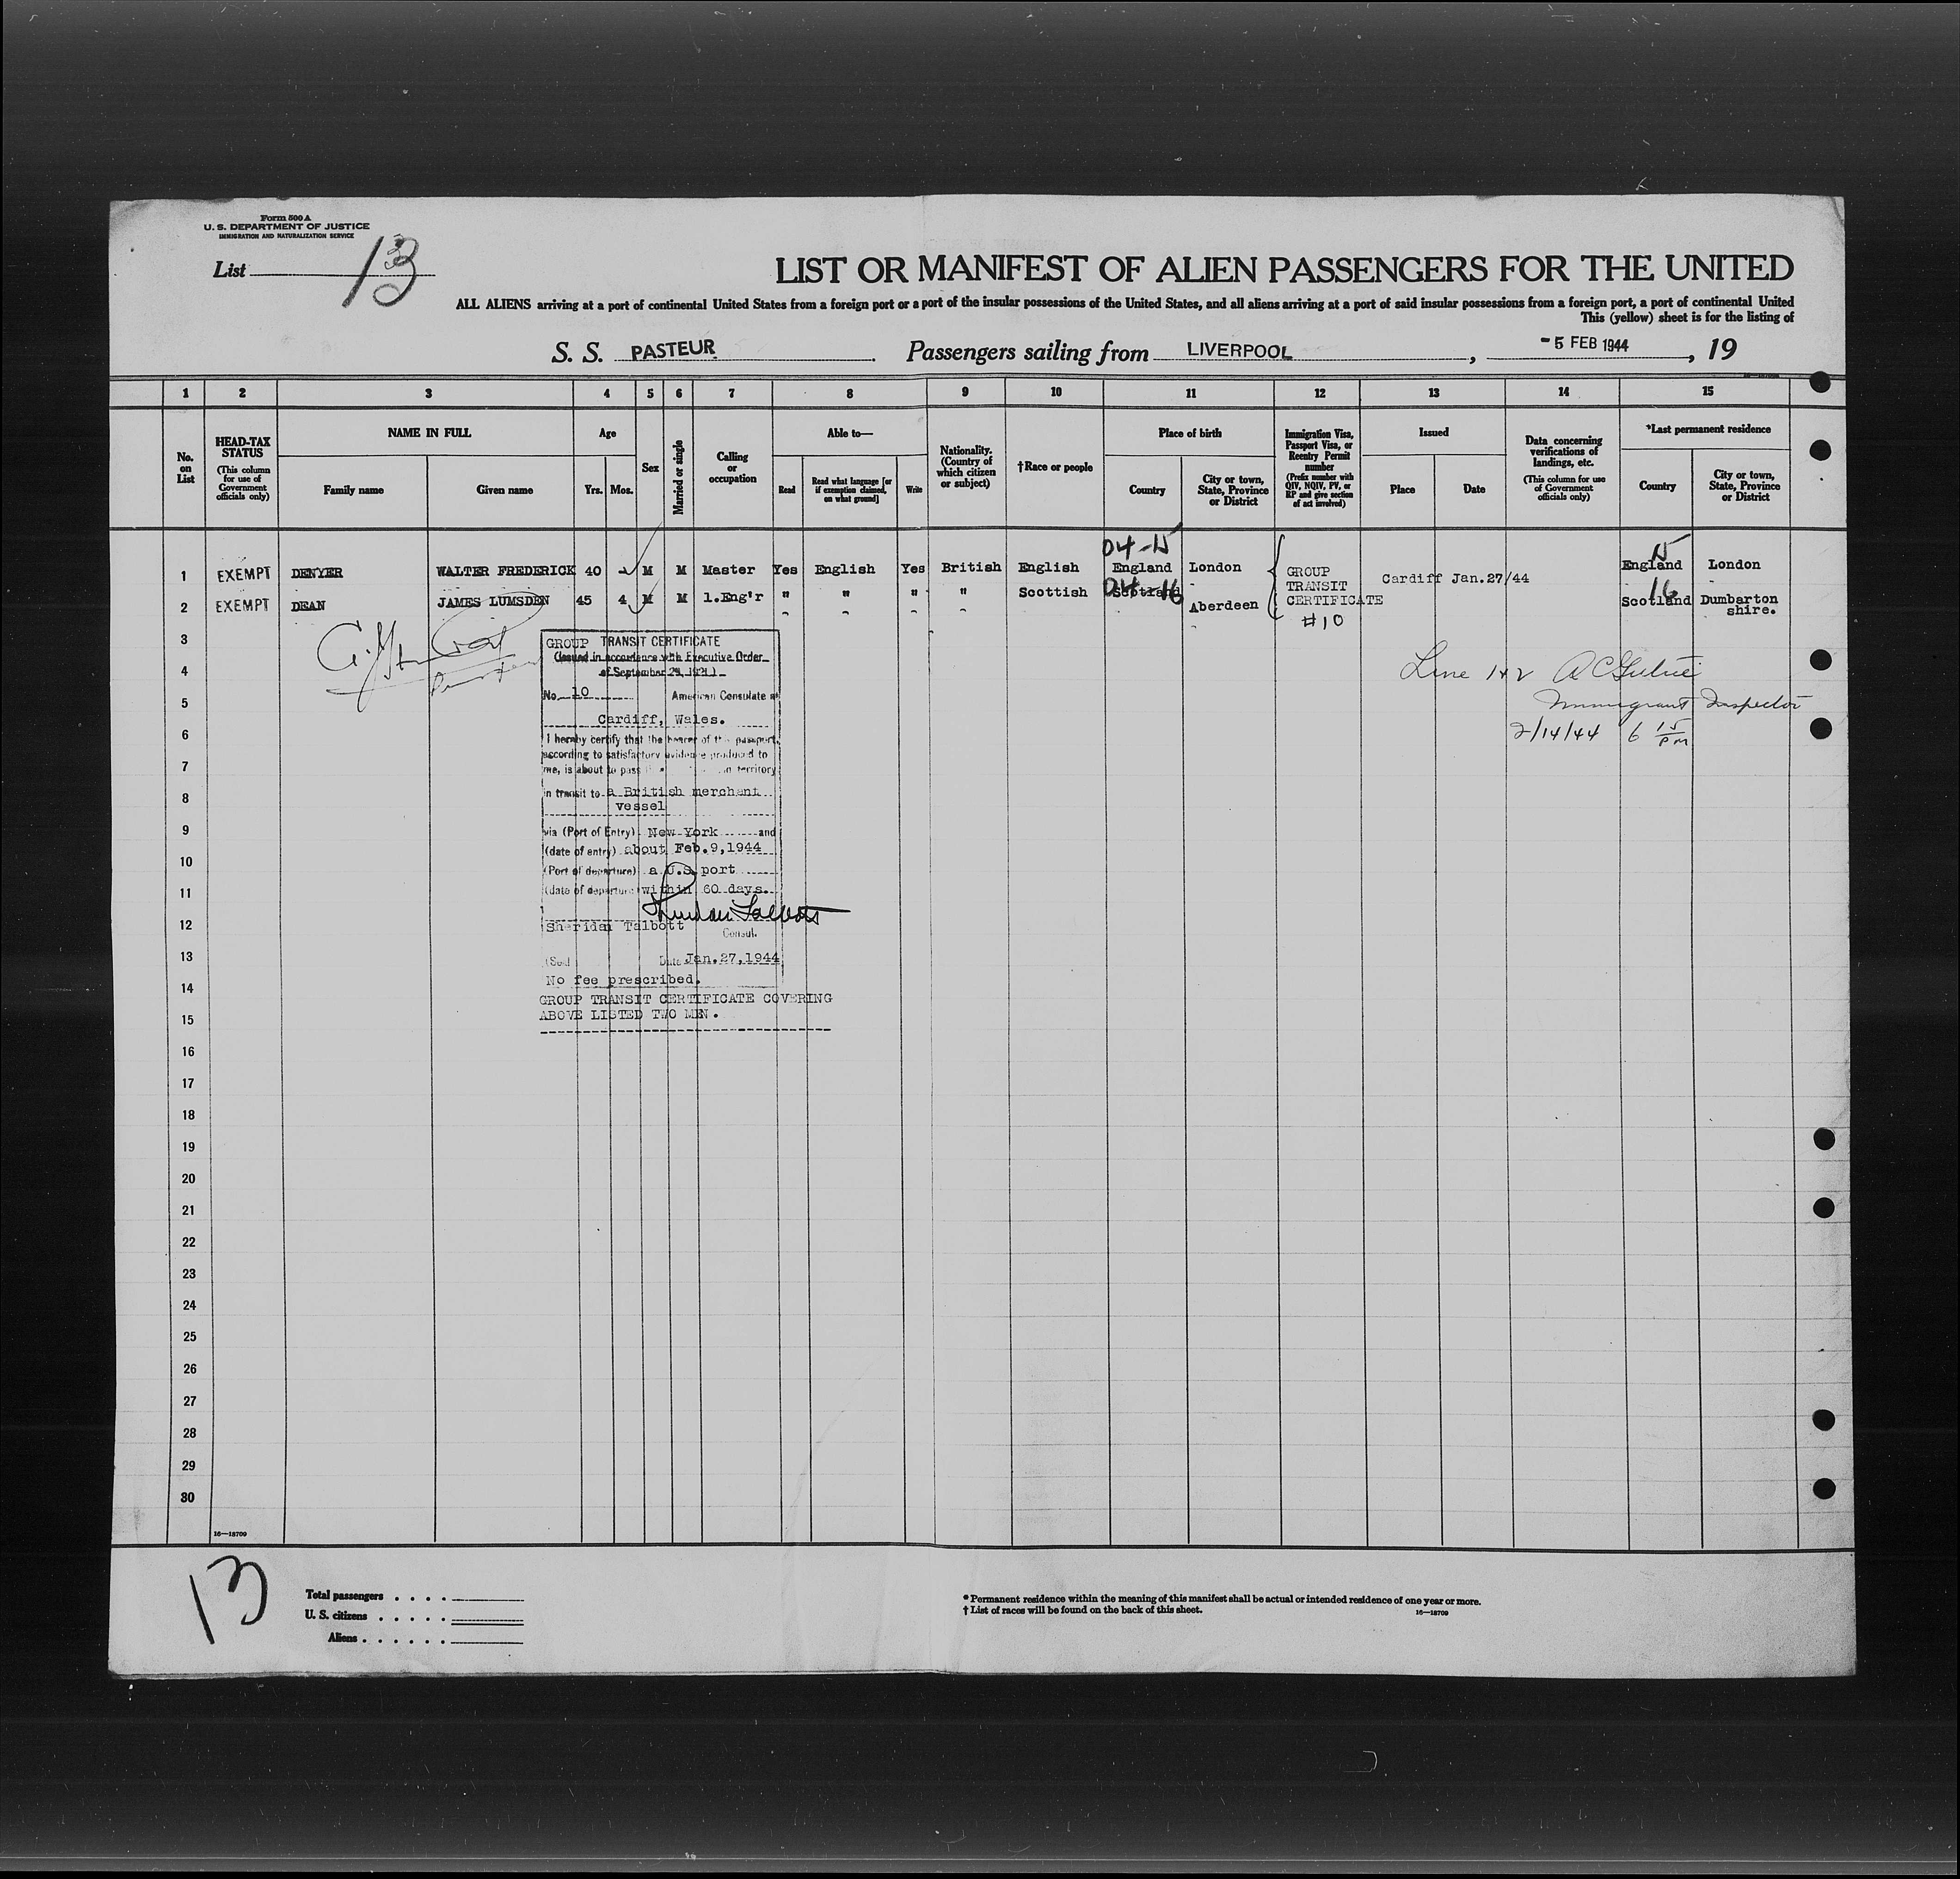 Form 500 A
U. S. DEPARTMENT OF JUSTICE
IMMIGRATION AND NATURALIZATION SERVICE
List 13
LIST OR MANIFEST OF ALIEN PASSENGERS FOR THE UNITED
ALL ALIENS arriving at a port of continental United States from a foreign port or a port of the insular possessions of the United States, and all aliens arriving at a port of said insular possessions from a foreign port, a port of continental United
This (yellow) sheet is for the listing of
S. S. PASTEUR Passengers sailing from LIVERPOOL, -5 FEB 1944, 19
1 2 3 4 5 6 7 8 9 10 11 12 13 14 15
No. on List
HEAD-TAX STATUS (This column for use of Government officials only)
NAME IN FULL
Family name Given name
Age
Yrs. Mos.
Sex
Married or single
Calling or occupation
Able to—
Read Read what language [or if exemption claimed, on what ground] Write
Nationality. (Country of which citizen or subject)
†Race or people
Place of birth
Country City or town, State, Province or District
Immigration Visa, Passport Visa, or Reentry Permit number (Prefix number with QIV, NQIV, PV, or RP and give section of act involved)
Issued
Place Date
Data concerning verifications of landings, etc. (This column for use of Government officials only)
*Last permanent residence
Country City or town, State, Province or District
04-15 15
1 EXEMPT DENYER WALTER FREDERICK 40 - M M Master Yes English Yes British English England London GROUP TRANSIT CERTIFICATE #10 Cardiff Jan.27/44 England London
04 16 16
2 EXEMPT DEAN JAMES LUMSDEN 45 4 M M 1.Eng'r " " " " Scottish Scotland Aberdeen Scotland Dumbarton shire.
3
4
5
6
7
8
9
10
11
12
13
14
15
16
17
18
19
20
21
22
23
24
25
26
27
28
29
30
GROUP TRANSIT CERTIFICATE
(Issued in accordance with Executive Order
of September 24, 1921)
No. 10 American Consulate at
Cardiff, Wales.
I hereby certify that the bearer of this passport,
according to satisfactory evidence produced to
me, is about to pass territory
in transit to a British merchant
vessel
via (Port of Entry) New York and
(date of entry) about Feb.9,1944
(Port of departure) a U.S. port
(date of departure within 60 days.
Sheridan Talbott
Sheridan Talbott
Consul.
(Seal Date Jan.27,1944
No fee prescribed.
GROUP TRANSIT CERTIFICATE COVERING
ABOVE LISTED TWO MEN.
Line 1+2
Immigrant Inspector
2/14/44 6 15 PM
16—18709
13
Total passengers
U. S. citizens
Aliens
* Permanent residence within the meaning of this manifest shall be actual or intended residence of one year or more.
† List of races will be found on the back of this sheet.
16—18709